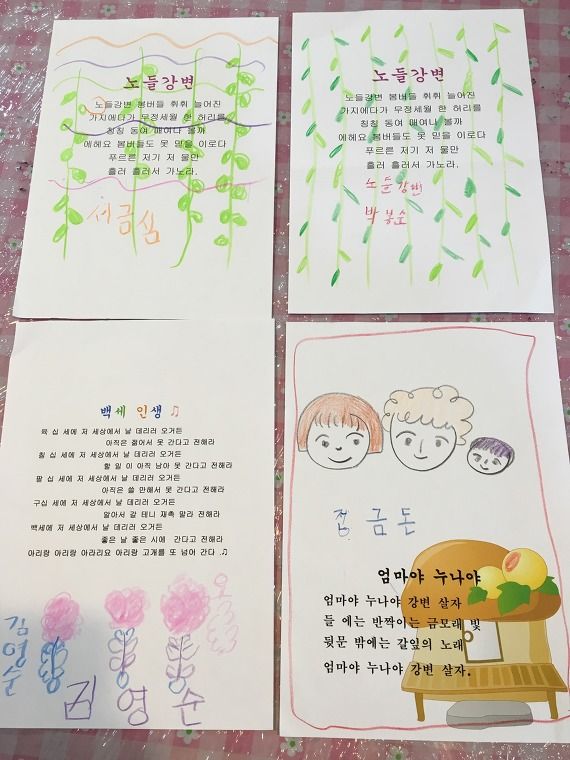 노들강변
노들강변 봄버들 휘휘 늘어진
가지에다가 무정세월 한 허리를
칭칭 동여 매여나 볼까
에헤요 봄버들도 못 믿을 이로다
푸르른 저기 저 물만
흘러 흘러서 가노라.
서금심
노들강변
노들강변 봄버들 휘휘 늘어진
가지에다가 무정세월 한 허리를
칭칭 동여 매여나 볼까
에헤요 봄버들도 못 믿을 이로다
푸르른 저기 저 물만
흘러 흘러서 가노라.
노들강변
박봉순
백세 인생 ♫
육 십 세에 저 세상에서 날 데리러 오거든
아직은 젊어서 못 간다고 전해라
칠 십 세에 저 세상에서 날 데리러 오거든
할 일 이 아직 남아 못 간다고 전해라
팔 십 세에 저 세상에서 날 데리러 오거든
아직은 쓸 만해서 못 간다고 전해라
구십 세에 저 세상에서 날 데리러 오거든
알아서 갈 테니 재촉 말라 전해라
백세에 저 세상에서 날 데리러 오거든
좋은 날 좋은 시에 간다고 전해라
아리랑 아리랑 아라리요 아리랑 고개를 또 넘어 간다 .♫
김영순
김영순
금돈
엄마야 누나야
엄마야 누나야 강변 살자
들 에는 반짝이는 금모래 빛
뒷문 밖에는 갈잎의 노래
엄마야 누나야 강변 살자.